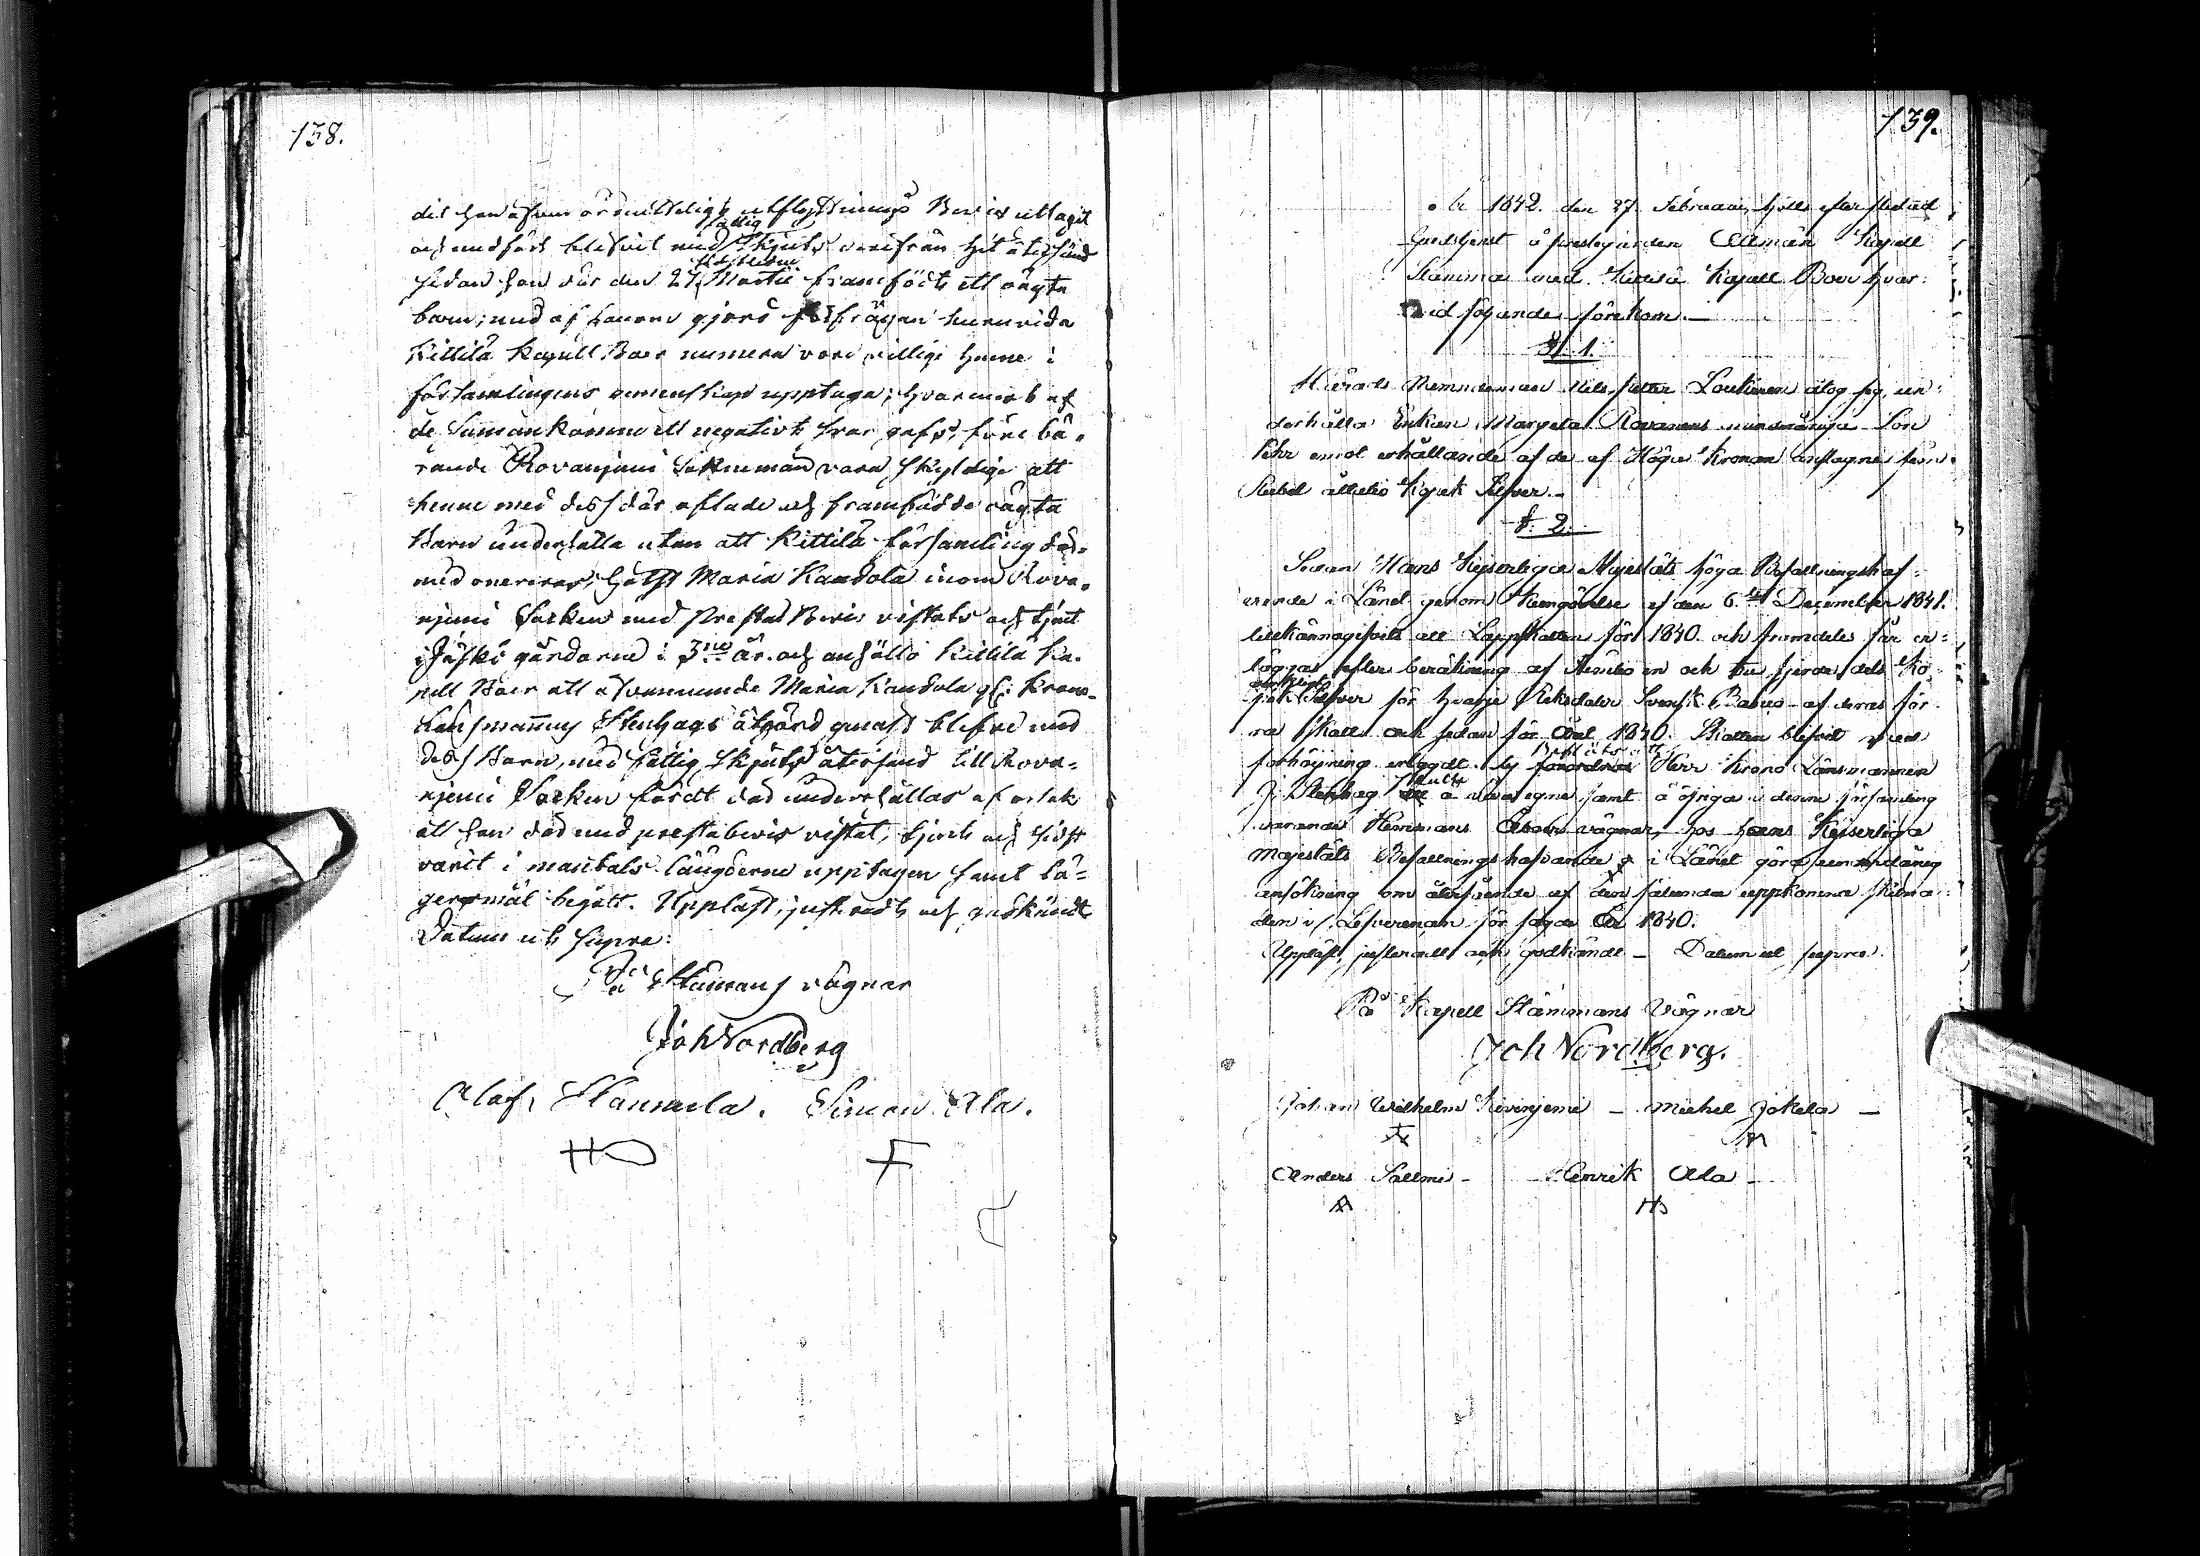 138.
det han äfven ormitteligt utflyttnings Bevis uttagit
och medfört blifvit med fattig Skjuts derifrån hit återsänd
sedan hon där den 27 sistledne Martii framfödt ett oägta
barn; med af honom gjord förfrågan huruvida
Kittilä Kapell Boer numera voro villige henne i
församlingens gemenskap upptaga; hvarmot af
de Samankomne ett negativt svar gafs, före bä-
rande Rovanjemi Soknemän vara skyldige att
henne med dess där aflade och framfödde oägta
Barn underhålla utan att Kittilä församling där-
med onereras, hälst Maria Kandola inom Rova-
njemi Socken med Prestas Bevis vistats och tjent
i Jäskö gårdarne i 3ne år. och anhöllo Kittilä Ka-
pell Boer att ofvannämnde Maria Kandola gm Krono
Länsmannens Stenhags åtgärd genast blefve med
dess Barn, med fattig Skjuts återsänd till Rova-
njemi Socken för att där underhållas af orsak
att hon där med prestabevis vistat, tjent och sidst
varit i mantals längderne upptagen samt lä-
gersmål begått. Uppläst, justeradt och godkändt
Datum ut supra:
På Stämans vägnar
Joh Nordberg
Olof Hannula. Simon Ala.
139.
År 1842. den 27 Februarii hölls efter slutad
Gudstjenst å prestegården Allmän Kapell
Stämma med Kittilä Kapell Boer hvar-
vid följande förekom.—
§ 1.
Härads Nemndeman Nils Petter Loukinen åtog sig un-
derhålla Enkan Margeta Rovanens minderåriga Son
Pehr emot erhållande af de af Höga Kronan anslagne fem
Rubel åttatio Kopek Silfver.—
§. 2.
Sedan Hans Kejserliga Majestäts höga Befallningshaf-
vande i Länet genom Kungörelse af den 6.te December 1841.
tillkännagifvit att Lappskatten för 1840. och framdeles får er-
läggas efter beräkning af Femtio en och tre fjerdedels Ko-
pek Silfver för hvarje Riksdaler Svensk Banco af deras för-
ra Skatt och sedan för Året 1840. Skatten blifvit med
förhöjning erlagdt. Herr Krono Länsmannen
J Stenhag att å våra egna samt å öfriga i denna församling
varande Hemmans Åboers vägnar, hos Hans Kejserliga
Majestäts Befallningshafvande i Länet göra underdånig
ansökning om återfående af den sålunda uppkomna skilna-
den vid Lefverancen för sagde År 1840.
Uppläst, justeradt och godkändt – Datum ut supra.
På Kapell Stämmans Vägnar
Joh Nordberg.
Johan Wilhelm Kivinjemi – Michel Jokela –
Anders Salmi – Henrik Ala –